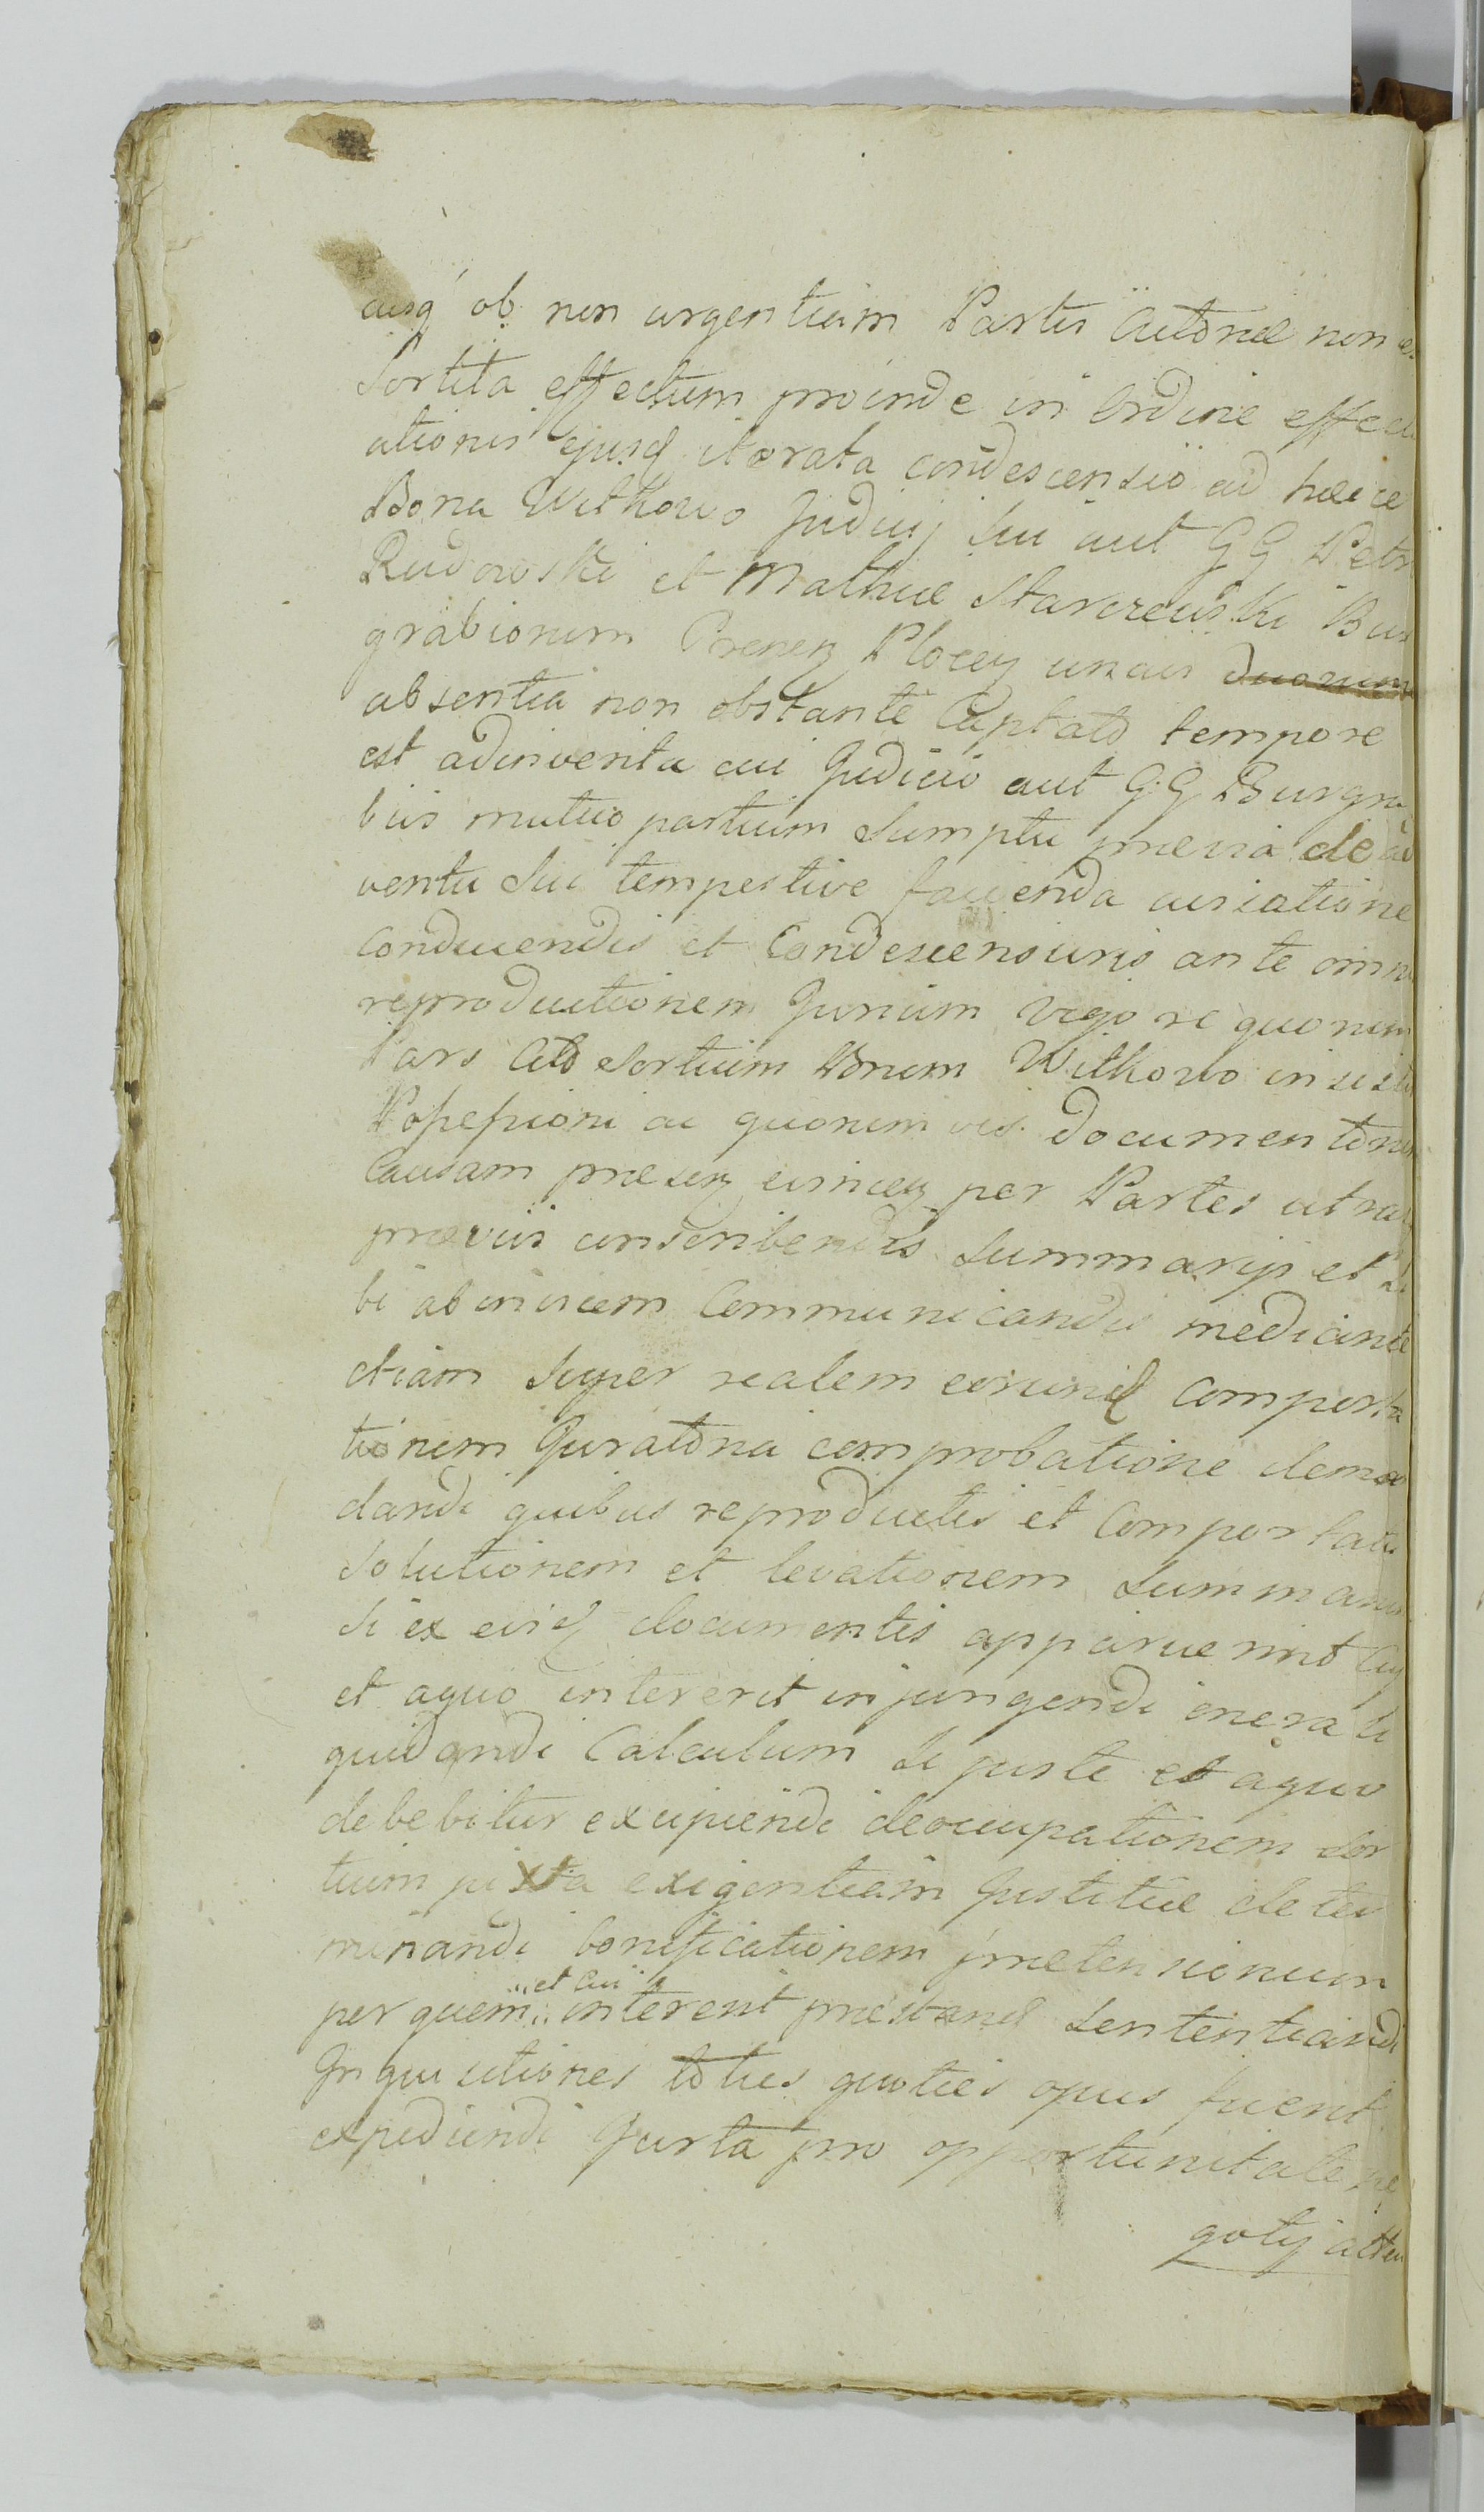 cujsq ob non urgentiam Partis Actoreæ non e
Sortita effectum proinde in Ordine effectu
ationis ejusd iterata condescensio ad hæcce
Bona Witkowo Judicij sui aut GG Petri
Rudowski et Mathiæ Starczewski Bur
grabiorum Præsen Plocen unius duorum
absentia non obstante Captato tempore
est adinventa cui Judicio aut G.G Burgra
biis mutuo partium Sumptu prævia de ad
ventu Sui tempestive facienda avisatione
Conducendis et Condescensuris ante omn
reproductionem Jurium vigore quorum
Pars Act Sortium Bonum Witkowo insistit
Possessioni ac quorumvis Documentorum
Causam præsen concern per Partes utras
præviis conscribendis Summarijs et Si
bi ab invicem Communicandis mediante
etiam Super realem eorund Comporta
tionem Juratoria comprobatione deman
dandi quibus reproductis et Comportatis
Solutionem et levationem Summarum
Si ex eisd documentis apparuerint Cuj
et a quo intererit injungendi onera li
quidandi Calculum Si juste et a quo
debebitur excipiendi deoccupationem Sor
tium juxta exigentiam Justitiæ deter
minandi bonificationem prætensionum
per quem et cui intererit præstand Sententiandi
Inquisitiones toties quoties opus fuerit
expediendi Jurta pro opportunitate ne
gotij atten